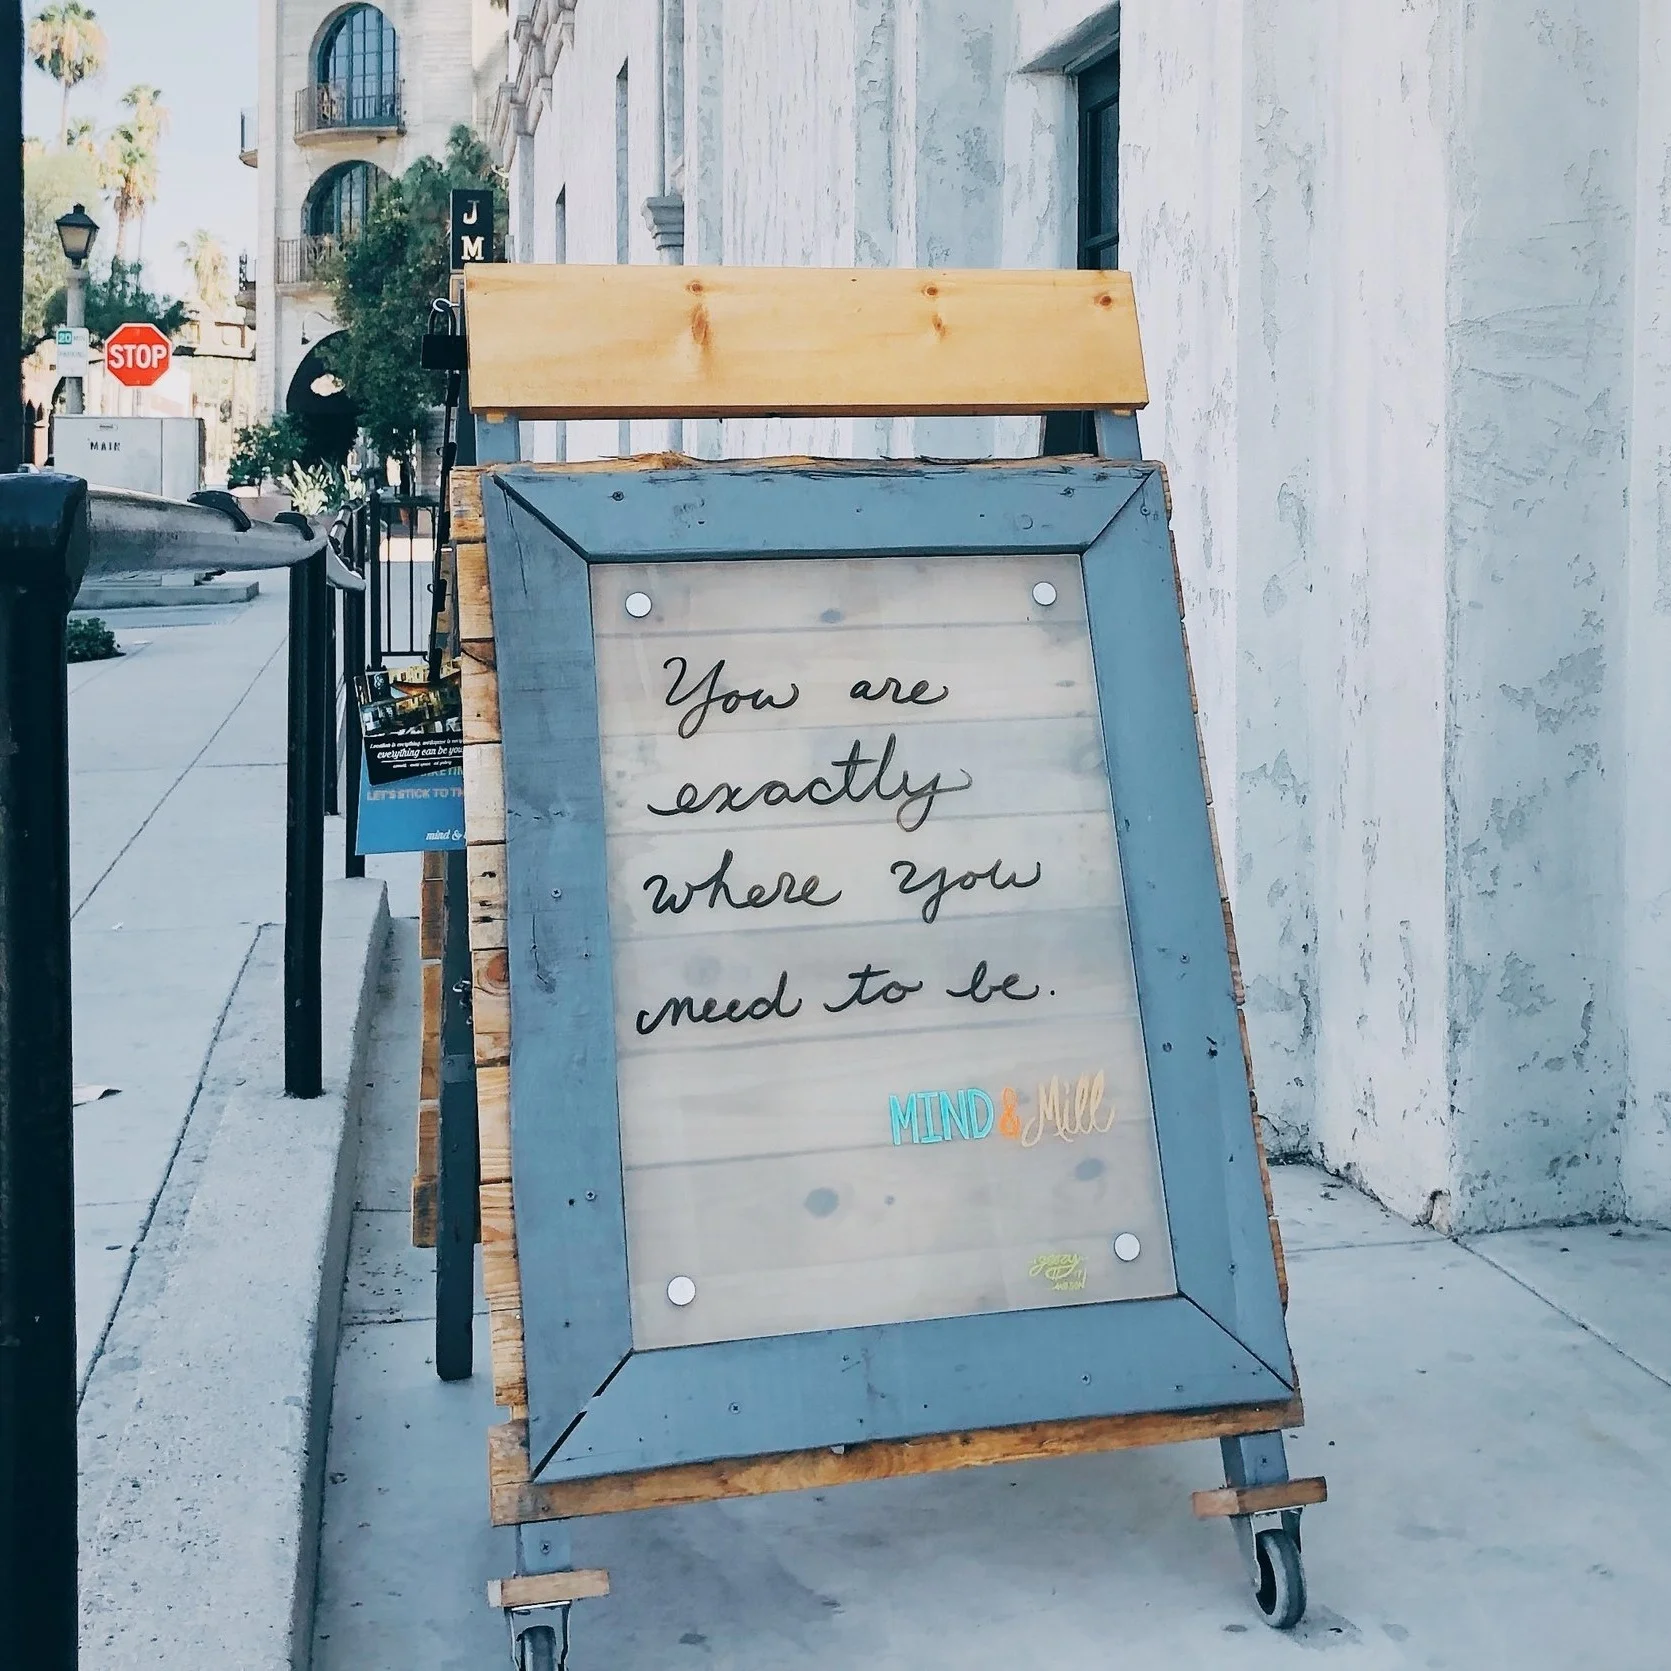 J
M
STOP
20
MAIN
everything can be you
LET'S STICK TO TH
mind &
You are
exactly
where you
need to be.
MIND & Mill